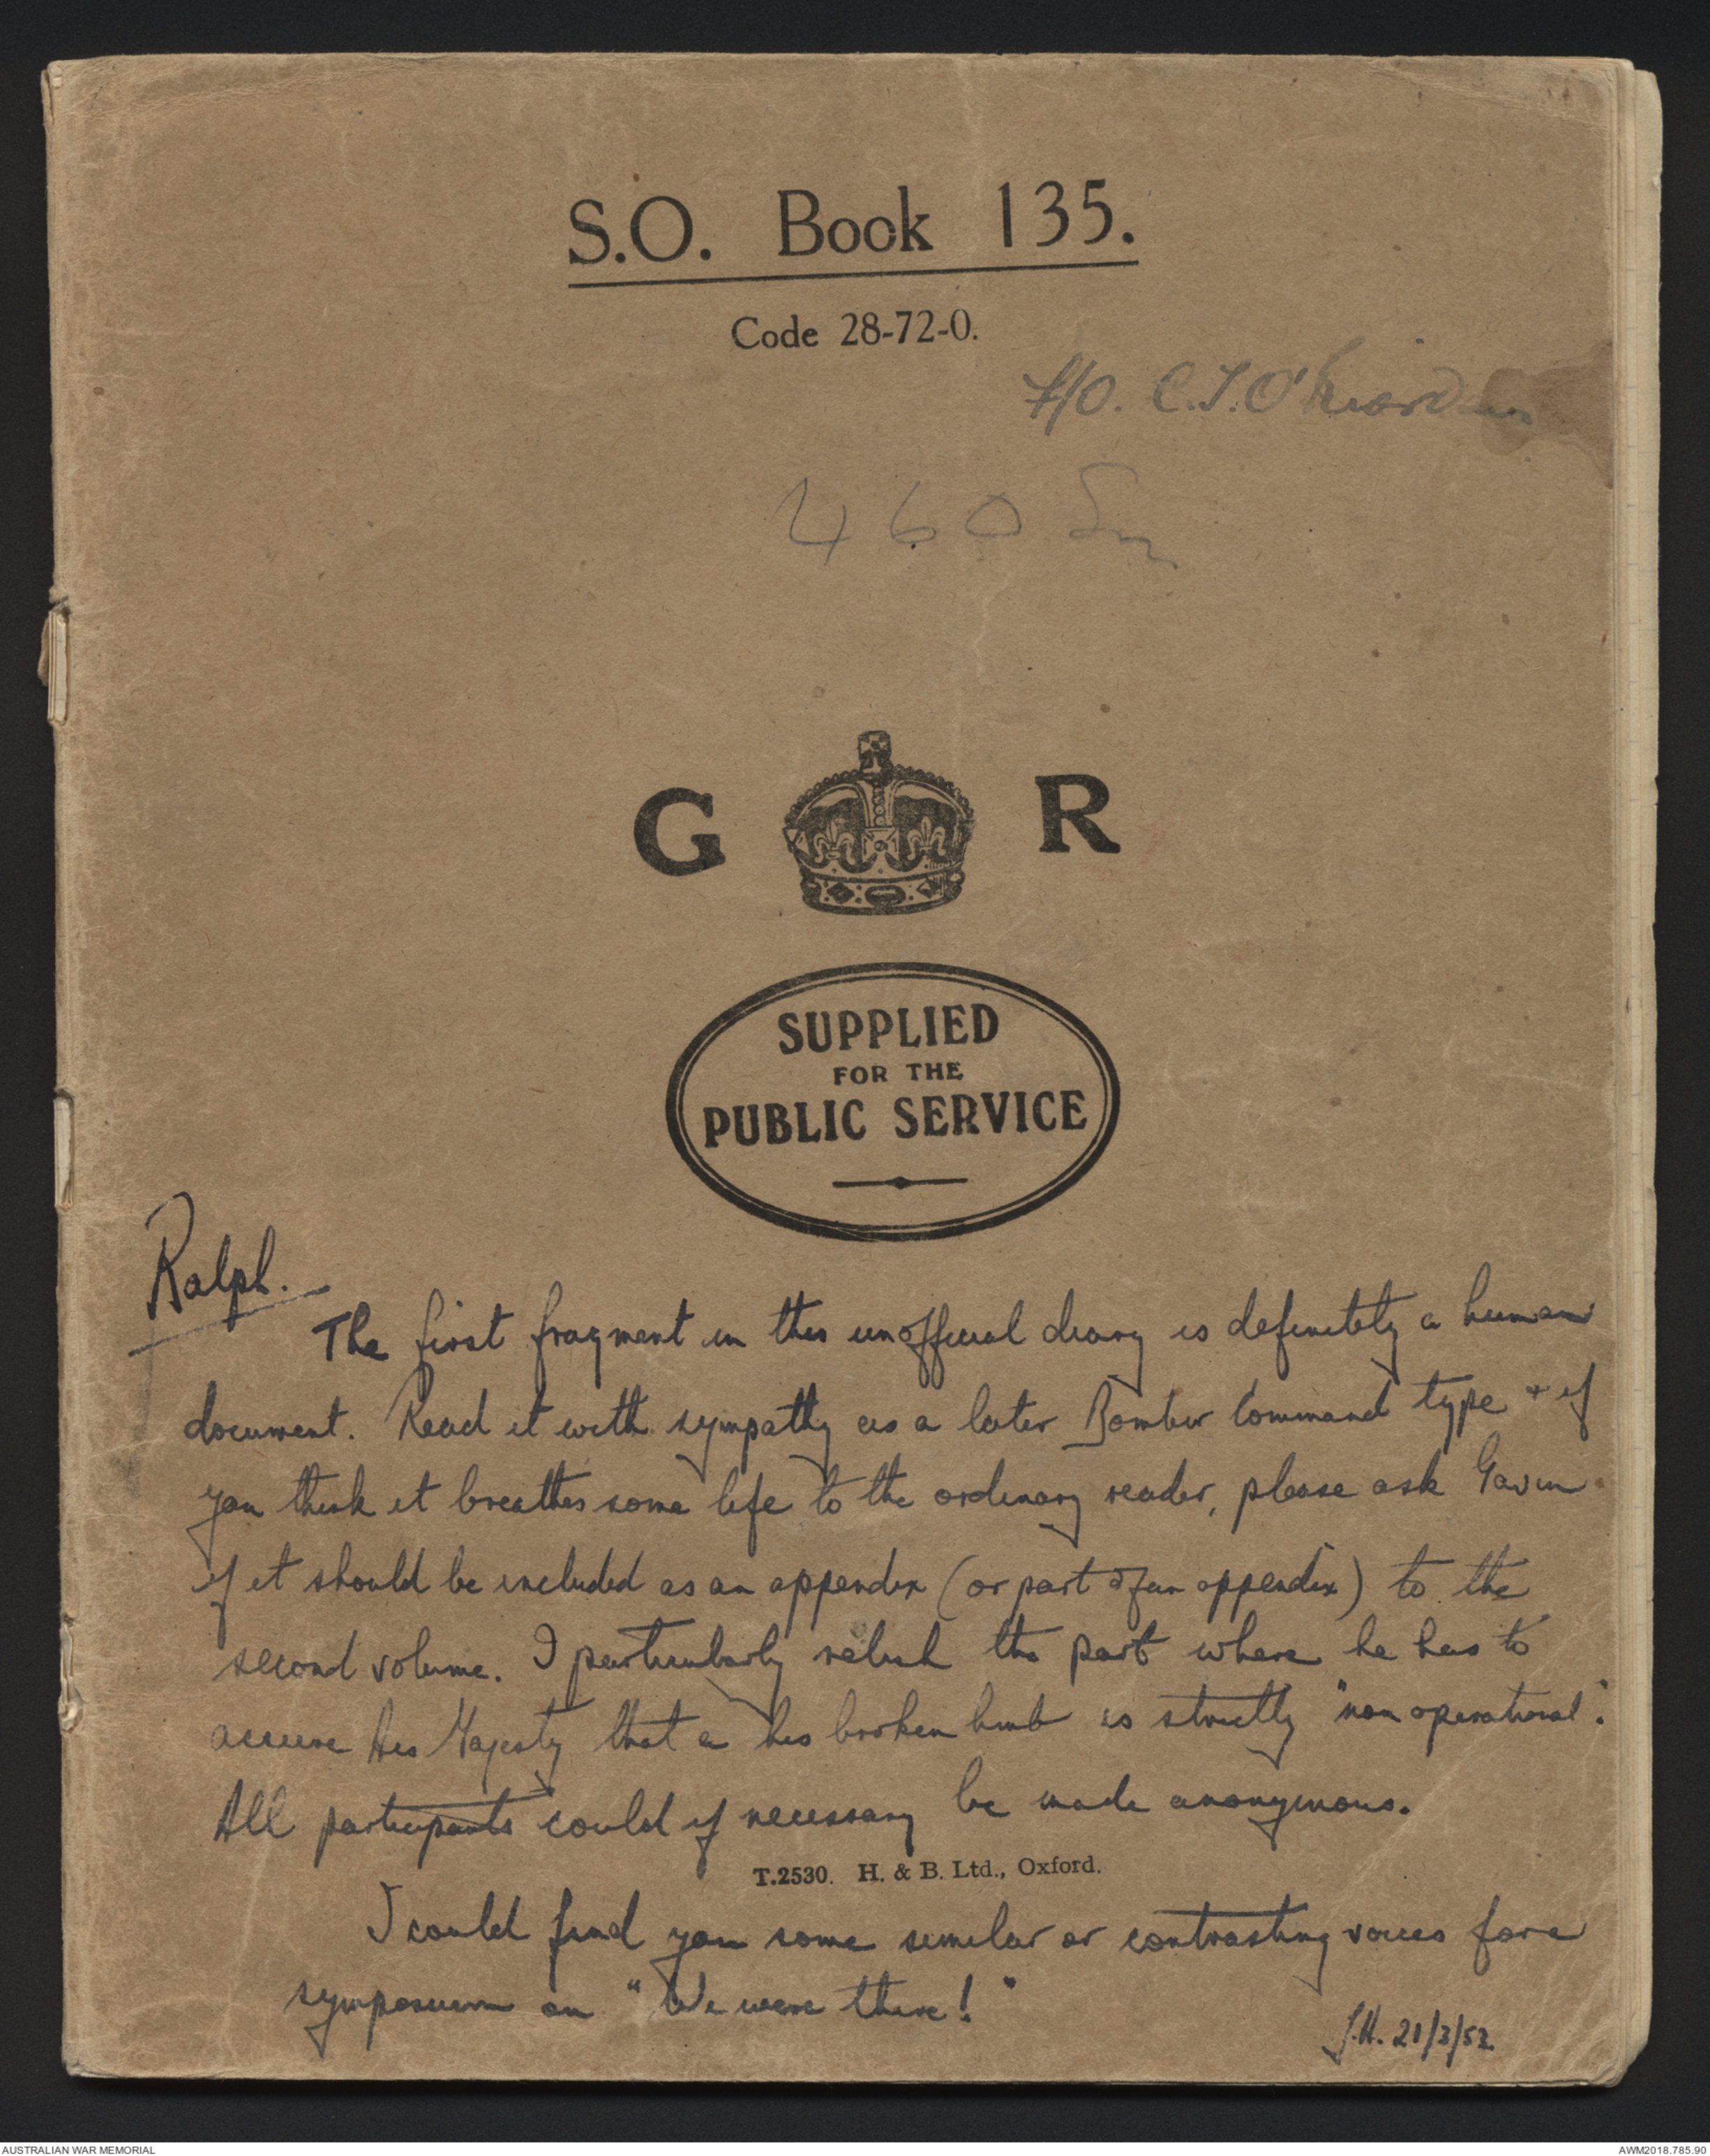 S.O. Book 135.
Code 28-72-0.
F/O. C.T. O'Riordan
460 Sqn
G R
SUPPLIED
FOR THE
PUBLIC SERVICE
Ralph.
The first fragment in this unofficial diary is definitely a human
document. Read it with sympathy as a later Bomber Command type + if
you think it breathes some life to the ordinary reader, please ask Gavin
if it should be included as an appendix (or part of an appendix) to the
second volume. I particularly relish the part where he has to
assure His Majesty that his broken limb is strictly "non operational".
All participants could if necessary be made anonymous.
T.2530. H. & B. Ltd., Oxford.
I could find you some similar or contrasting voices for a
symposium on "We were there!"
J.H. 21/3/52
AUSTRALIAN WAR MEMORIAL
AWM2018.785.90